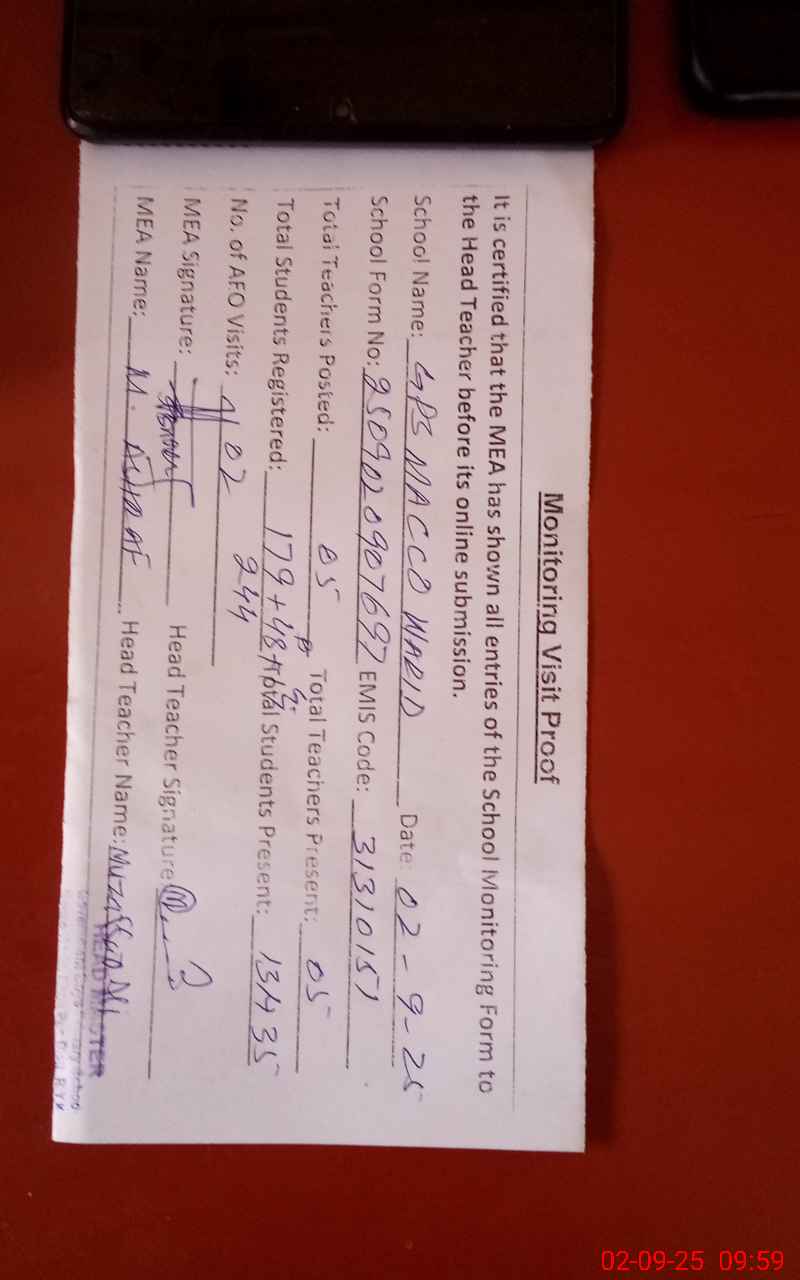 Monitoring Visit Proof
It is certified that the MEA has shown all entries of the School Monitoring Form to
the Head Teacher before its online submission.
School Name: GPS MACCO WARID Date: 02-9-25
School Form No: 2509020907697 EMIS Code: 31310151
Total Teachers Posted: 05 Total Teachers Present: 05
Total Students Registered: 179+48+ Total Students Present:
244
No. of AEO Visits: 02
MEA Signature: Head Teacher Signature
MEA Name: M. Head Teacher Name: Muzaffar
HEAD MASTER
02-09-25 09:59